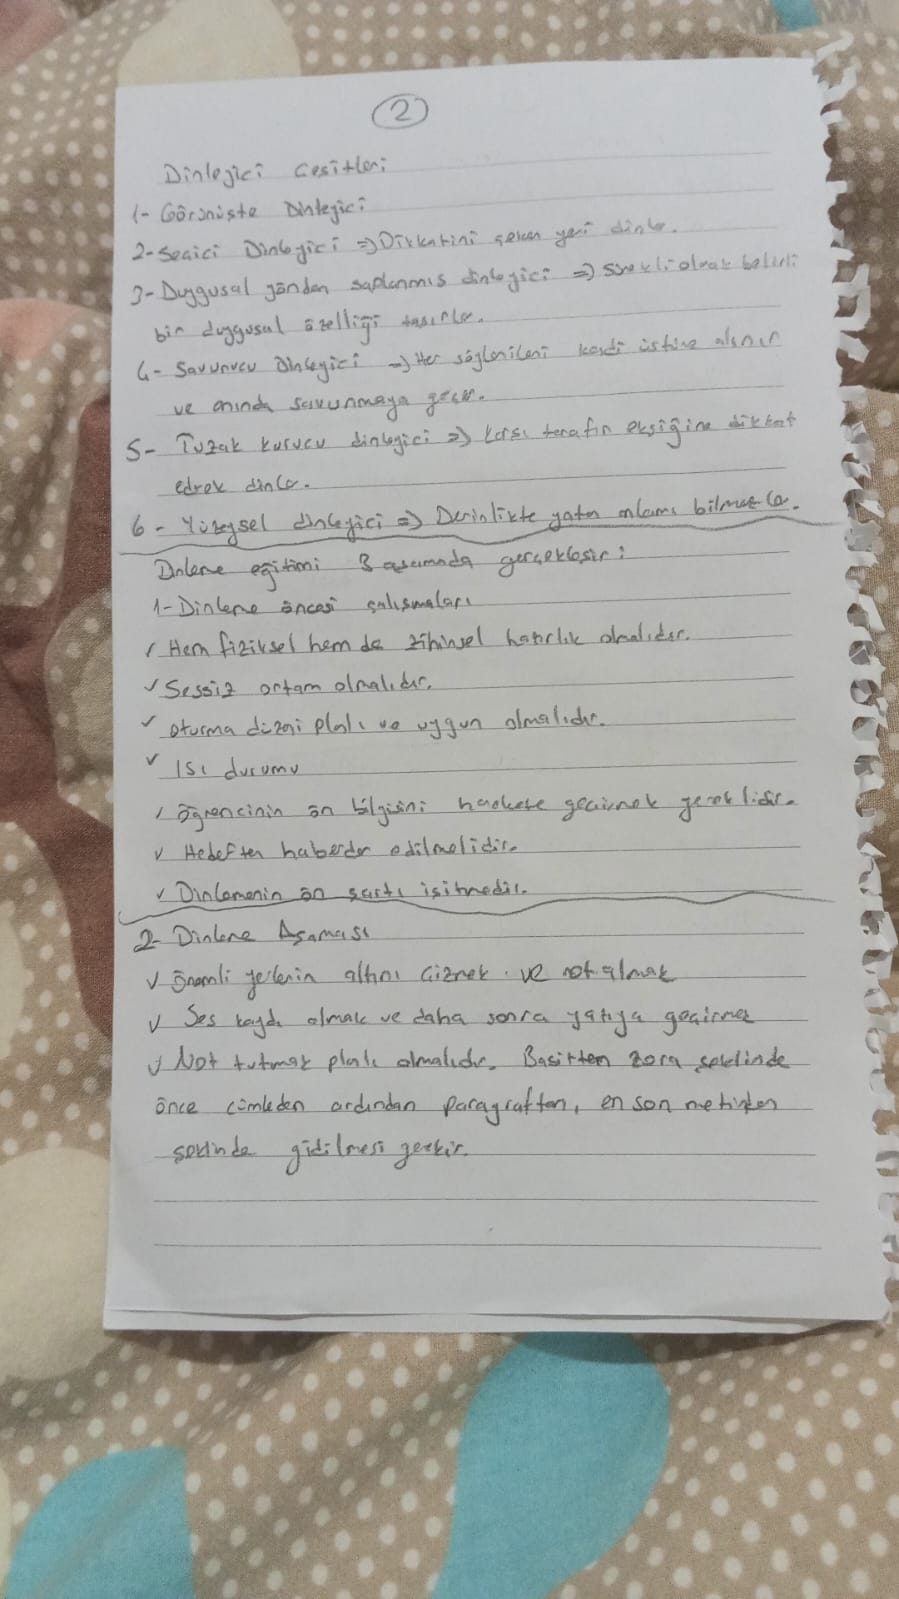 2
Dinleyici Çeşitleri
1- Görünüşte Dinleyici
2- Seçici Dinleyici => Dikkatini çeken yeri dinler.
3- Duygusal yönden saplanmış dinleyici => Sürekli olarak belirli
bir duygusal özelliği taşırlar.
4- Savunucu Dinleyici => Her söylenileni kendi üstüne alınır
ve anında savunmaya geçer.
5- Tuzak kurucu dinleyici => Karşı tarafın eksiğine dikkat
ederek dinler.
6- Yüzeysel dinleyici => Derinlikte yatan anlamı bilmezler.
Dinleme eğitimi 3 aşamada gerçekleşir:
1- Dinleme öncesi çalışmaları
✓ Hem fiziksel hem de zihinsel hazırlık olmalıdır.
✓ Sessiz ortam olmalıdır.
✓ Oturma düzeni planlı ve uygun olmalıdır.
✓ Isı durumu
✓ Öğrencinin ön bilgisini harekete geçirmek gereklidir.
✓ Hedeften haberdar edilmelidir.
✓ Dinlemenin ön şartı işitmedir.
2- Dinleme Aşaması
✓ Önemli yerlerin altını çizmek ve not almak
✓ Ses kaydı almak ve daha sonra yazıya geçirmek
✓ Not tutmak planlı olmalıdır. Basitten zora şeklinde
önce cümleden ardından paragraftan, en son metinden
şeklinde gidilmesi gerekir.